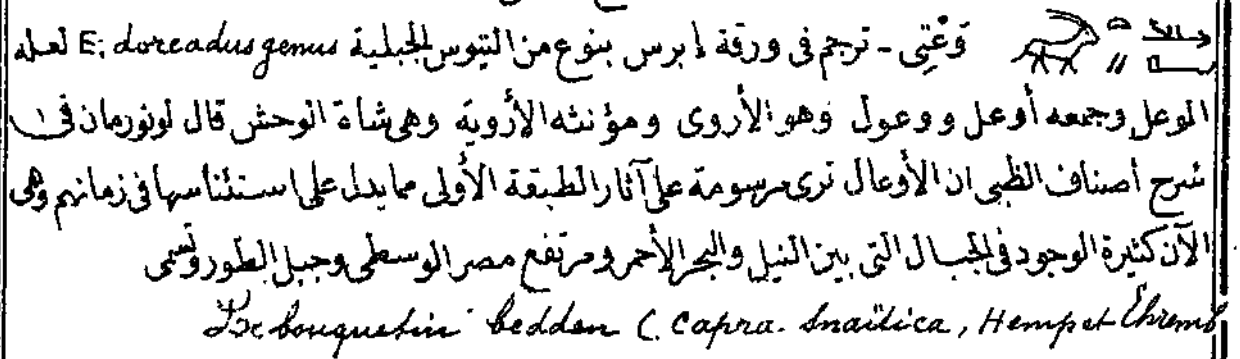 وَعْتِى - ترجم فى ورقة إبرس بنوع من التيوس الجبلية E: doreadus genus لعله
الوعل وجمعه أوعل ووعول وهو الأروى ومؤنثه الأروية وهى شاة الوحش قال لونورمان فى
شرح أصناف الظبى ان الأوعال ترى مرسومة على آثار الطبقة الأولى مما يدل على استئناسها فى زمانهم وهى
الآن كثيرة الوجود فى الجبال التى بين النيل والبحر الأحمر ومرتفع مصر الوسطى وجبل الطور وتسمى
Le bouquetin bedden (Capra. Snaïtica, Hemp et Ehremb